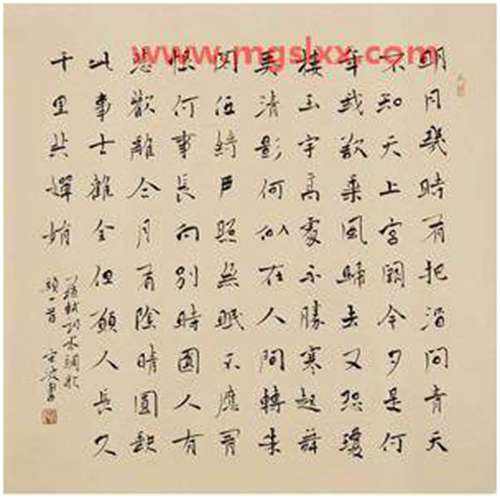 www.mgslxx.com
明月幾時有把酒問青天
不知天上宫闕今夕是何
年我欲乘風歸去又恐瓊
樓玉宇高處不勝寒起舞
弄清影何似在人間轉朱
閣低綺戶照無眠不應有
恨何事長向別時圓人有
悲歡離合月有陰晴圓缺
此事古難全但願人長久
千里共嬋娟
蘇軾詞水調歌
頭一首
書